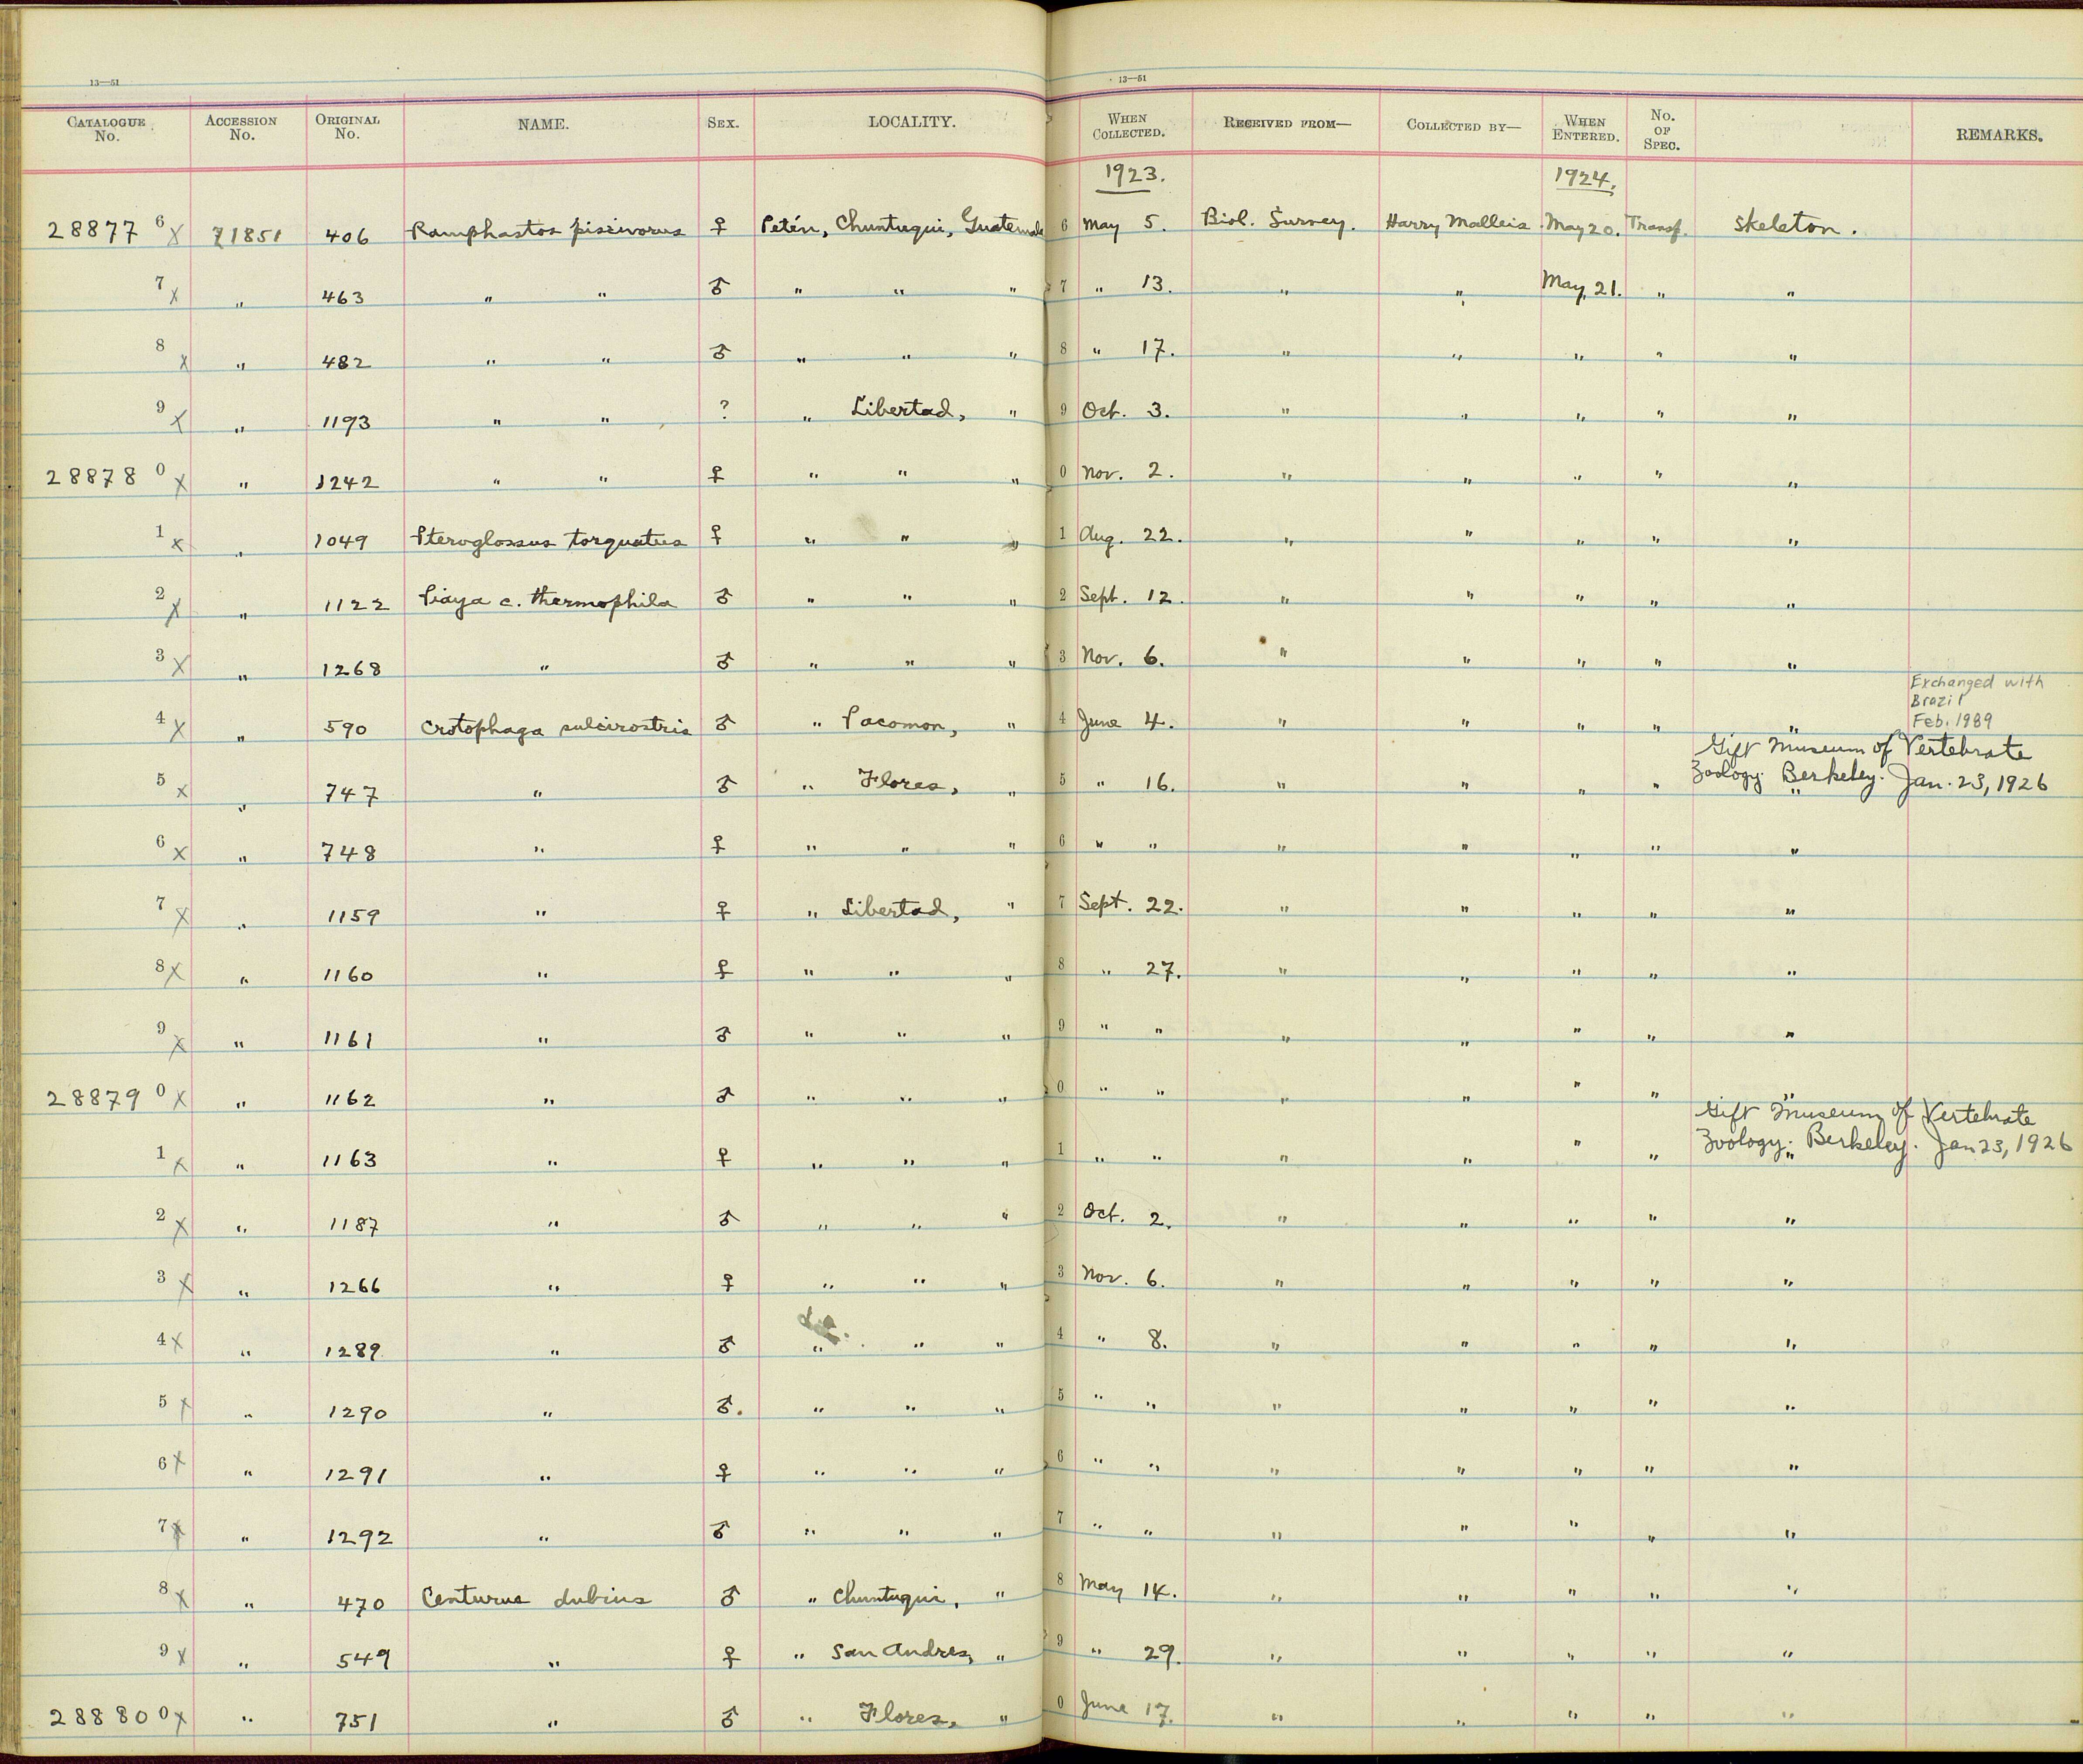 13—51 13—51
CATALOGUE No. ACCESSION No. ORIGINAL No. NAME. SEX. LOCALITY. WHEN COLLECTED. RECEIVED FROM— COLLECTED BY— WHEN ENTERED. No. OF SPEC. REMARKS.
1923. 1924.
28877 6 x 71851 406 Ramphastos piscivorus ♀ Petén, Chuntuqui, Guatemala 6 May 5. Biol. Survey. Harry Malleis May 20. Transf. Skeleton.
7 x " 463 " " ♂ " " " 7 " 13. " " May 21. " "
8 x " 482 " " ♂ " " " 8 " 17. " " " " "
9 x " 1193 " " ? " Libertad, " 9 Oct. 3. " " " " "
28878 0 x " 1242 " " ♀ " " " 0 Nov. 2. " " " " "
1 x " 1049 Pteroglossus torquatus ♀ " " " 1 Aug. 22. " " " " "
2 x " 1122 Piaya c. thermophila ♂ " " " 2 Sept. 12. " " " " "
3 x " 1268 " ♂ " " " 3 Nov. 6. " " " " "
Exchanged with
Brazil
Feb. 1989
4 x " 590 Crotophaga sulcirostris ♂ " Pacomon, " 4 June 4. " " " " "
Gift Museum of Vertebrate
Zoology. Berkeley. Jan. 23, 1926
5 x " 747 " ♂ " Flores, " 5 " 16. " " " " "
6 x " 748 " ♀ " " " 6 " " " " " " "
7 x " 1159 " ♀ " Libertad, " 7 Sept. 22. " " " " "
8 x " 1160 " ♀ " " " 8 " 27. " " " " "
9 x " 1161 " ♂ " " " 9 " " " " " " "
28879 0 x " 1162 " ♂ " " " 0 " " " " " " "
Gift Museum of Vertebrate
Zoology. Berkeley. Jan 23, 1926
1 x " 1163 " ♀ " " " 1 " " " " " " "
2 x " 1187 " ♂ " " " 2 Oct. 2. " " " " "
3 x " 1266 " ♀ " " " 3 Nov. 6. " " " " "
4 x " 1289 " ♂ " " " 4 " 8. " " " " "
5 x " 1290 " ♂. " " " 5 " " " " " " "
6 x " 1291 " ♀ " " " 6 " " " " " " "
7 x " 1292 " ♂ " " " 7 " " " " " " "
8 x " 470 Centurus dubius ♂ " Chuntuqui, " 8 May 14. " " " " "
9 x " 549 " ♀ " San Andres, " 9 " 29. " " " " "
28880 0 x " 751 " ♂ " Flores, " 0 June 17. " " " " "